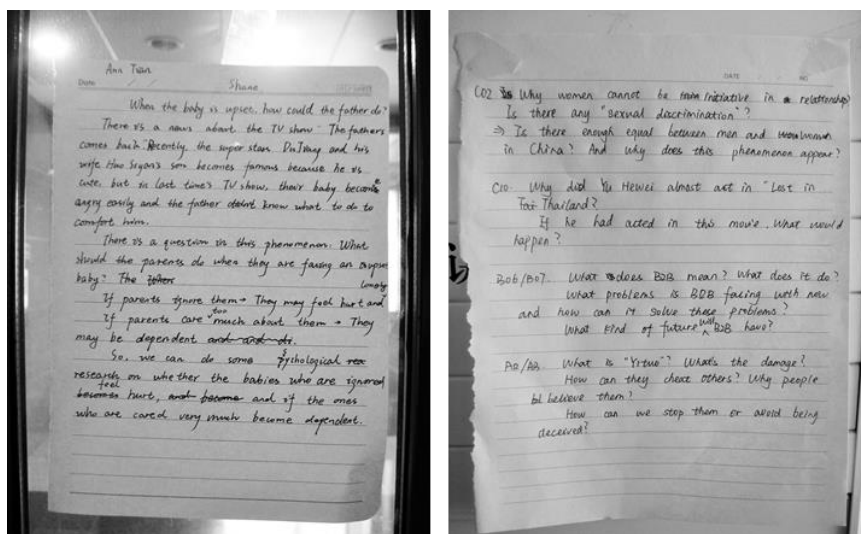 Ann Tian
Date
Shane
When the baby is upset, how could the father do?
There is a news about the TV show "The fathers
comes back." Recently, the super star, Du Jiang and his
wife Huo Siyan's son becomes famous because he is
cute, but in last time's TV show, their baby becomes
angry easily and the father didn't know what to do to
comfort him.
There is a question in this phenomenon: What
should the parents do when they are facing an unpset
baby? The
If parents ignore them → They may feel hurt and lonely
If parents care too much about them → They
may be dependent and and di.
So, we can do some psychological rea
research on whether the babies who are ignored
becomes feel hurt, and become and if the ones
who are cared very much become dependent.
DATE NO
C02 Is Why women cannot be initiative in a relationship?
Is there any "sexual discrimination"?
⇒ Is there enough equal between men and women
in China? And why does this phenomenon appear?
C10. Why did Yu Hewei almost act in "Lost in
Thailand?
If he had acted in this movie, What would
happen?
B06/B07. What does B2B mean? What does it do?
What problems is B2B facing with now
and how can it solve these problems?
What kind of future will B2B have?
A2/A3 What is "Yituo"? What's the damage?
How can they cheat others? Why people
believe them?
How can we stop them or avoid being
deceived?